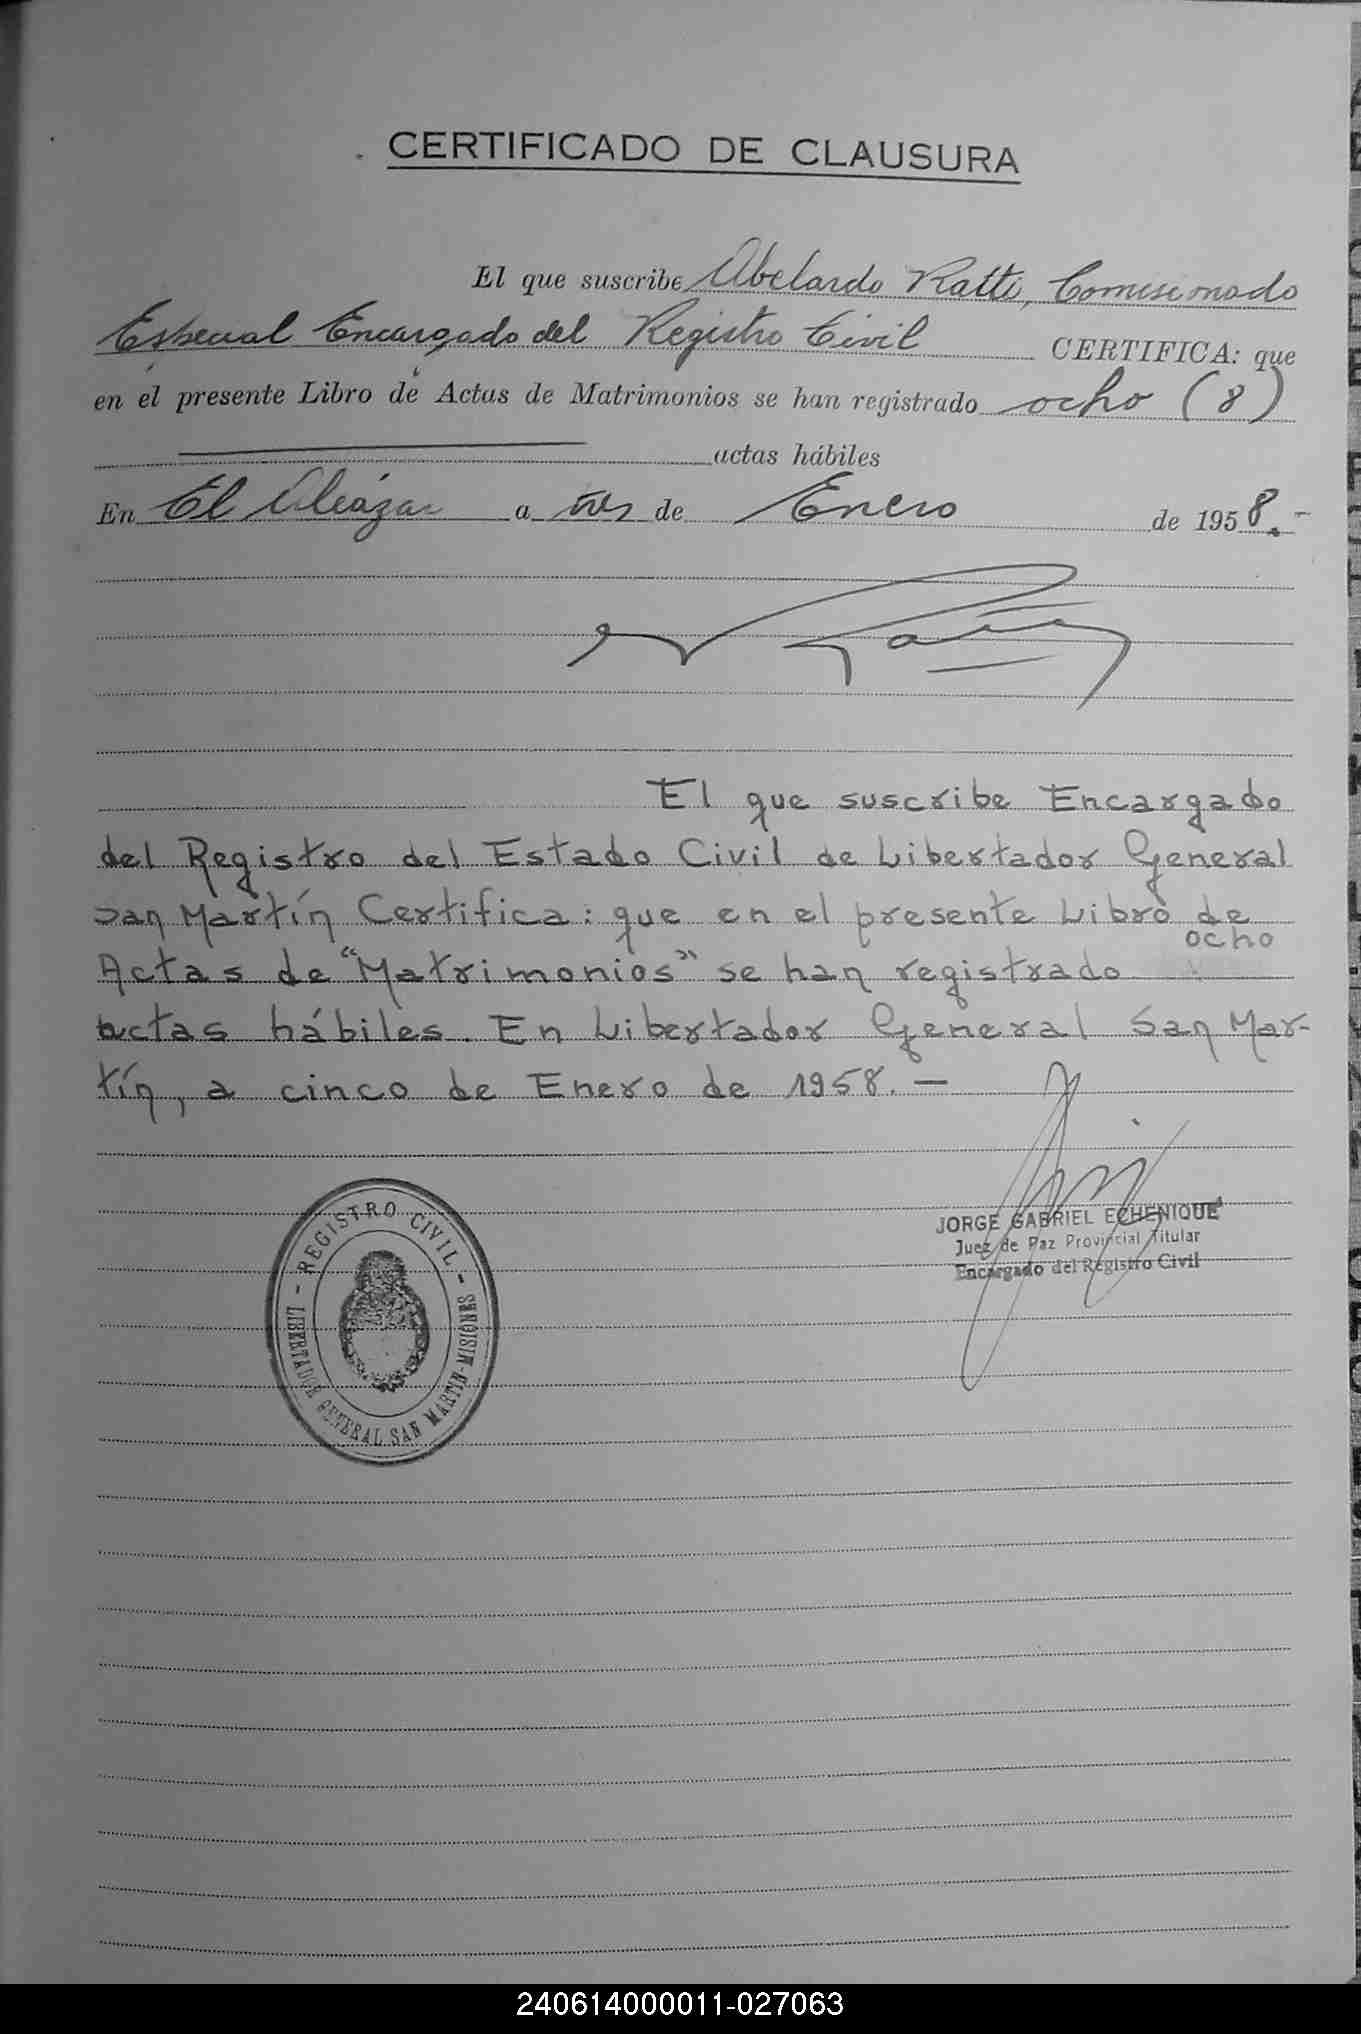 CERTIFICADO DE CLAUSURA
El que suscribe Abelardo Ratti, Comisionado
Especial Encargado del Registro Civil CERTIFICA: que
en el presente Libro de Actas de Matrimonios se han registrado ocho (8)
actas hábiles
En El Alcázar a tres de Enero de 1958.-
El que suscribe Encargado
del Registro del Estado Civil de Libertador General
San Martín Certifica: que en el presente Libro de
ocho
Actas de "Matrimonios" se han registrado
actas hábiles. En Libertador General San Mar-
tín, a cinco de Enero de 1958.—
JORGE GABRIEL ECHENIQUE
Juez de Paz Provincial Titular
Encargado del Registro Civil
- REGISTRO CIVIL -
LIBERTADOR GENERAL SAN MARTIN-MISIONES
240614000011-027063